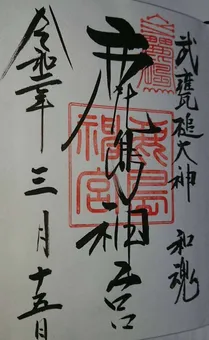 武甕槌大神 和魂
鹿島神宮
鹿島
神宮
令和二年三月十五日